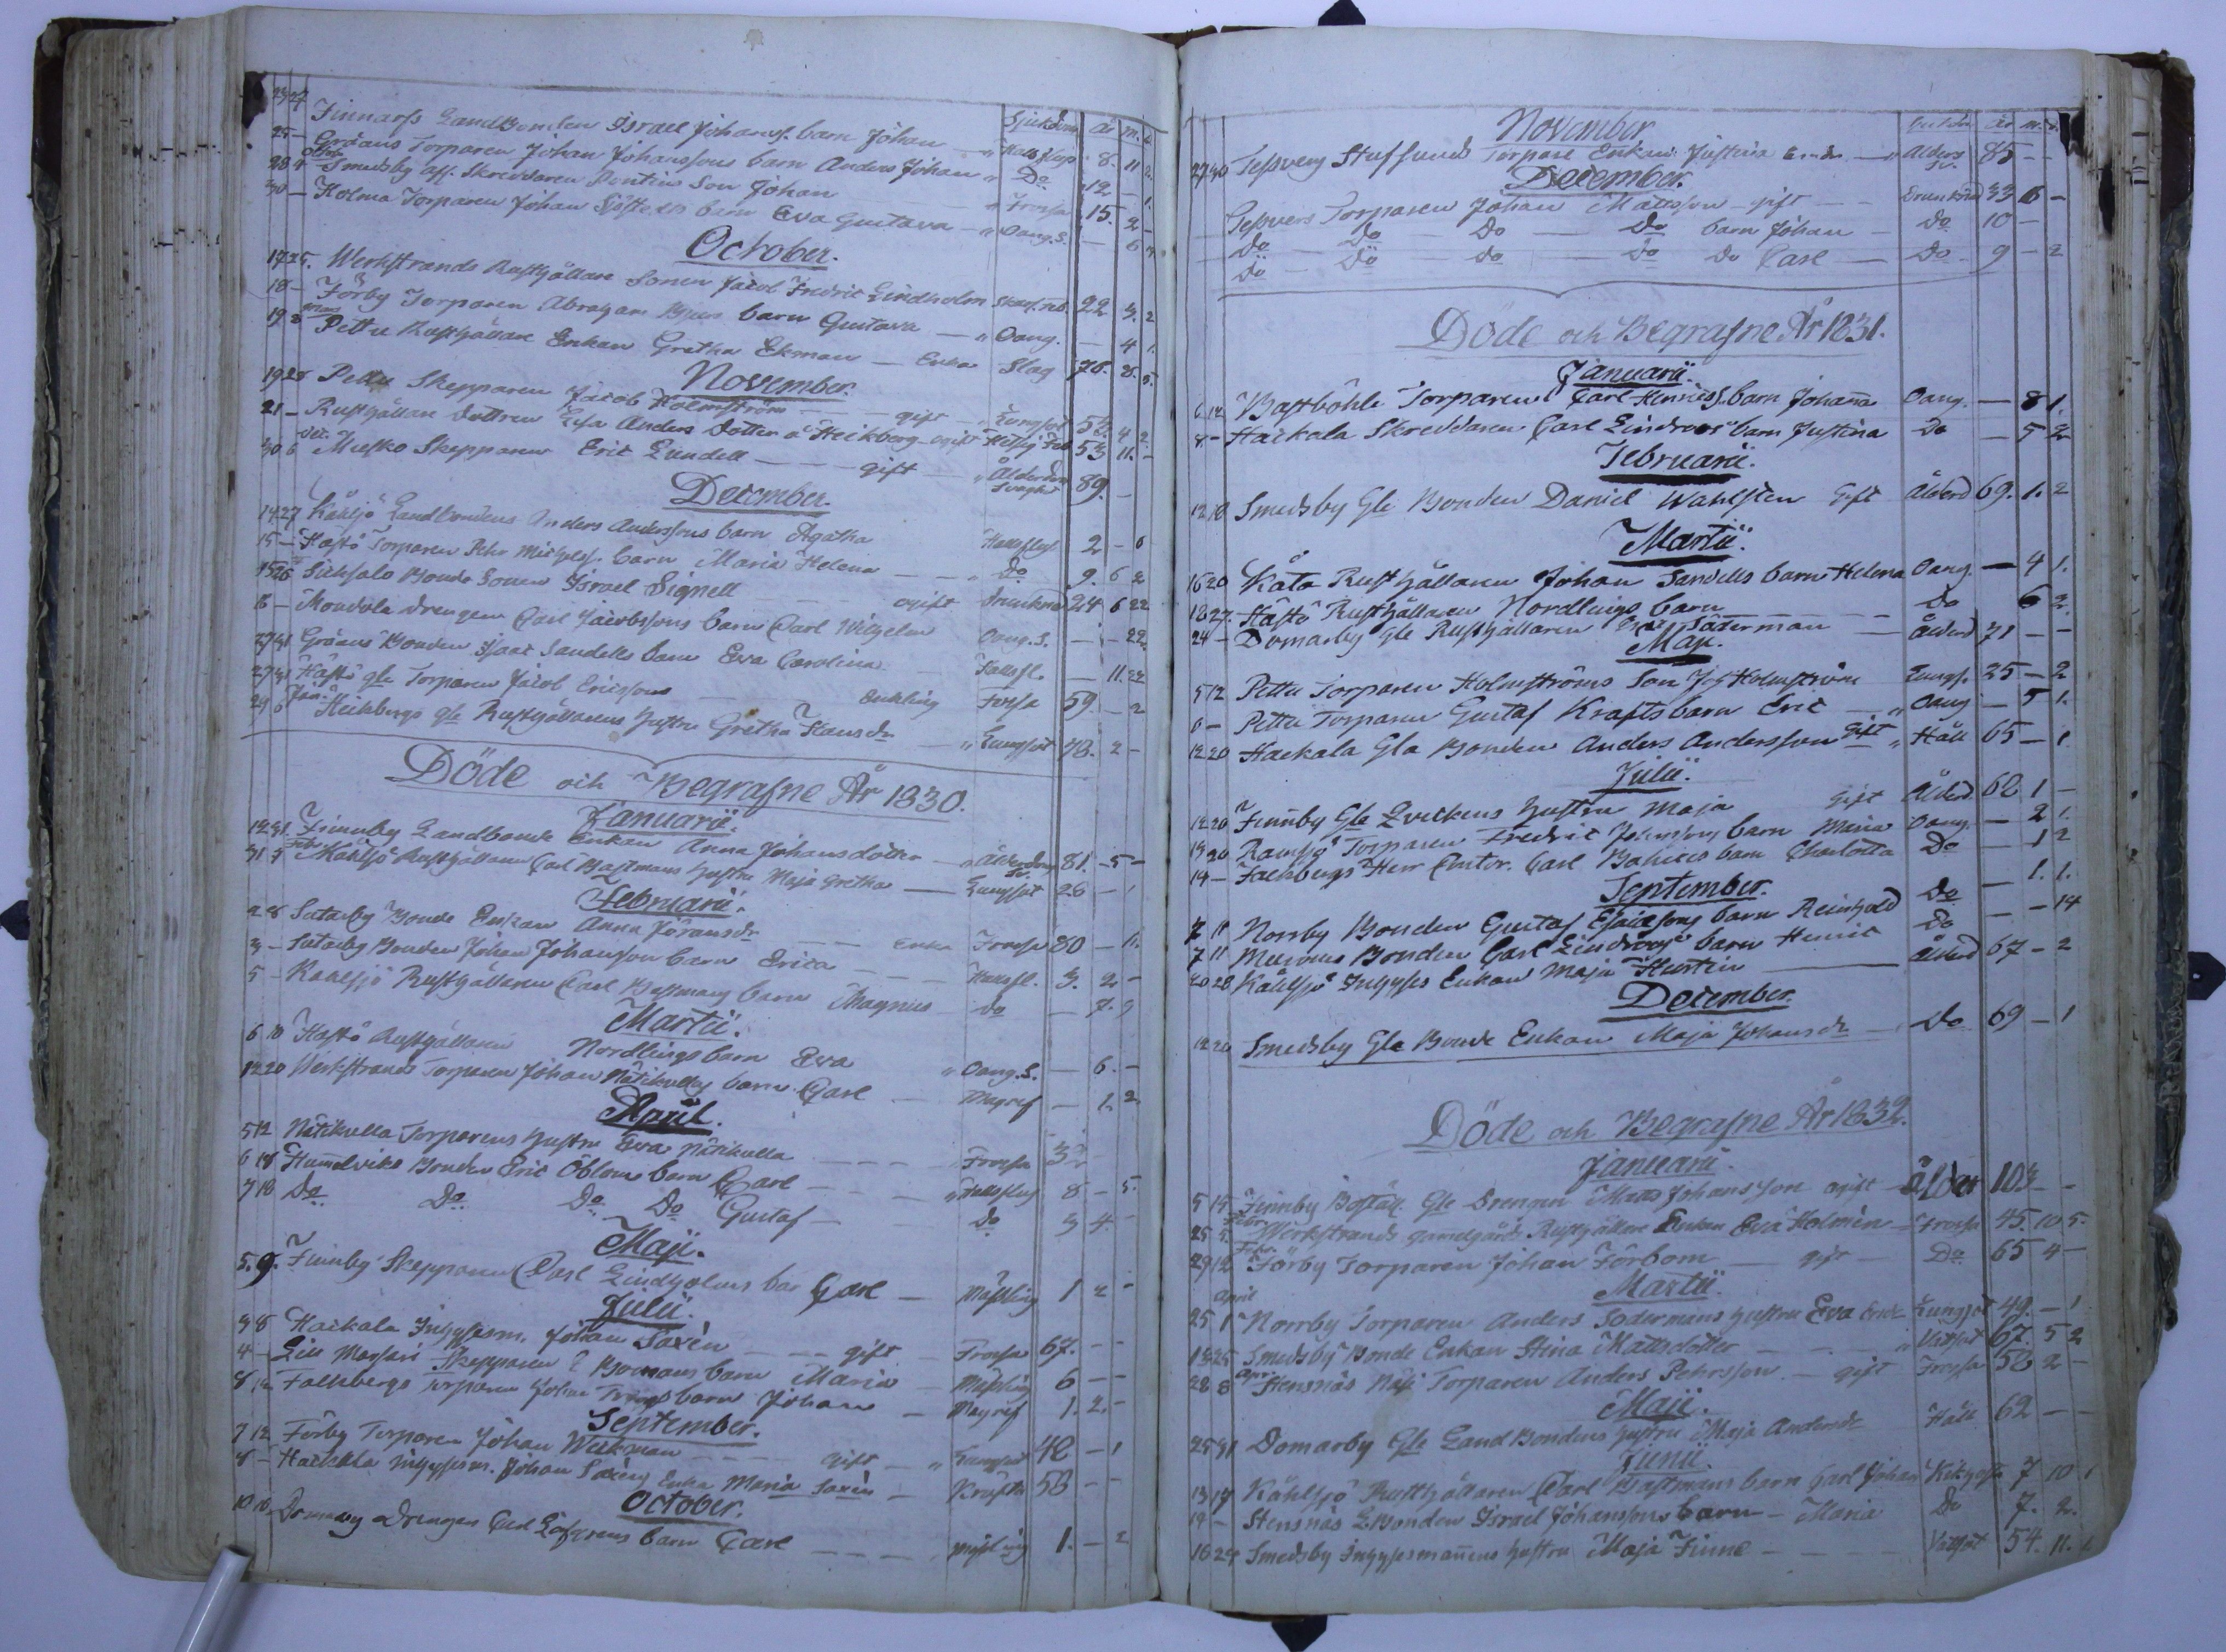 Sjukdom År m. d.
23 27 Finnarfs Landbonden Israel Johanss. barn Johan — " Halsfluss 8. 11 2.
25 — Gröans Torparen Johan Johanssons barn Anders Johan " Do 12 — 1.
Octob.
28 4 Smedsby afl. Skreddaren Pontins Son Johan " Frossa 15. 2 —
30 — Holma Torparen Johan Sjöstedts barn Eva Gustava — " Oang. S. — 6
October.
17 25. Werkstrands Rusthållare Sonen Jacob Fredric Lindholm 22 3. 2
18 — Förby Torparen Abraham barn Gustava — " Oang. — 4 1.
19 Pettu Rusthållare Enkan Gretha Ekman — Enka Slag 78. 8. 5.
November.
19 28 Pettu Skepparen Jacob Holmström — gift — Lungsot 52. 4 2.
21 — Rusthållare dottren Lisa Anders Dotter å Heikberg ogift 53 11. —
Dec.
30 6 Skepparen Eric Lundell — gift — " Ålderdoms Svaghet 89. —
December.
14 27 Kåhlsjö Landbondens Anders Anderssons barn Agatha Halsfluss 2 — 6
15 — Hastö Torparen Pehr Michelss. barn Maria Helena — " Do 9. 6 2
15 26 Bonde Sonen Israel Signell ogift Drunknad 24 6 22
18 — Mondola Drengen Carl Jacobssons barn Carl Wilhelm Oang. S. — — 22.
27 31 Gröans Bonden Isaac Sandells barn Eva Carolina Halsfl. — 11. 22
27 31 Hastö gle Torparen Jacob Ericssons — enkling Frossa 59 — 2
Jan.
29 6 Heikbergs gle Rusthållarens hustru Gretha Hansdr " Lungsot 78. 2 —
Döde och Begrafne År 1830.
Januarii.
12 31. Finnby Landbonde Enkan Anna Johansdotter — " Ålderdoms Sv. 81. — 5 —
Febr
31 7 Kåhlsjö Rusthållaren Carl Bastmans hustru Maja Gretha — Lungsot 28 — 1
Februarii.
2 8 Satarby Bonde Enkan Anna Göransdr — Enka Frossa 80 — 11.
3 — Satarby Bonden Johan Johansson barn Erica — Halsfl. 3. 2 —
5 — Kahlsjö Rusthållaren Carl Bastmans barn Magnus Do — 7. 9
Martii.
6 10 Hastö Rusthållaren Nordlings barn Eva " Oang. S. — 6. —
12 20 Werkstrands Torparen Johan Nätikullas barn Carl — Magref — 1. 2.
April.
5 12 Nätikulla Torparens hustru Eva Nätikulla — Frossa
6 18 Hammelviks Bonden Eric Öbloms barn Carl — " Halsfluss 8 — 5.
7 18 Do Do Do Do Gustaf — Do 3 4. —
Maji.
5. 9. Finnby Skepparen Carl Lindholms bar Carl — Mässling 1 2 —
Julii.
3 8 Haikala Inhysesm. Johan Saxén — gift Frossa 67. — —
4 — Skepparen barn Maria — Mässling 6 — —
8 Falkbergs Torparen Johan barn Johan — Magref 1. 2. —
September.
7 12 Förby Torparen Johan Weekman — gift — " Lungsot 42 — 1
8 — Haikala Inhysesm. Johan Saxéns Enka Maria Saxén — Kräfta 58 — —
October.
10 Domarby Drengen barn Carl — Mässling 1. — 2
November År m. d.
27 30 Tesveng Torpare Enkan Justina — " Ålders Sv. 85 — —
December.
Tesvers Torparen Johan Mattsson — gift — Drunknad 33 6 —
Do Do — Do — Do barn Johan — Do 10 —
Do — Do — Do — Do Do Carl — Do 9 — 2
Döde och Begrafne År 1831.
Januarii.
6 12 Bastböhle Torparens Carl Henricss. barn Johana Oang. — 8 1.
8 — Haikala Skreddaren Carl Lindroos barn Justina Do — 5 2
Februarii.
12 18 Smedsby Gle Bonden Daniel Wahlsten Gift Ålderd 69. 1. 2
Martii.
16 20 Kåta Rusthållaren Johan Sandells barn Helena Oang. — 4 1.
18 27. Hästö Rusthållaren Nordlings barn — Do 6 2.
24 — Domarby gle Rusthållaren Söderman — Ålderd 71 — —
Maji.
5 12 Pettu Torparen Holmströms Son Holmström Lungs. 25 — 2
6 — Pettu Torparen Gustaf Krafts barn Eric — " Oang — 5 1.
12 20 Haikala Gla Bonden Anders Andersson Gift " Håll 65 — 1
Julii.
12 20 Finnby Gle hustru Maja Gift Ålderd 62 1 —
19 20 Ramsjö Torparen Fredric barn Maria Oang. — 2 1.
19 — Falkbergs Herr Carl barn Charlotta Do — 1 2
September.
7 11 Norrby Bonden Gustaf barn Reinhold Do — 1. 1.
7 11 Bonden Carl Lindroos barn Henric Do — — 14
20 28 Kåhlsjö Inhyses Enkan Maja Hurtin — Ålderd 67 — 2
December.
12 26 Smedsby Gle Bonde Enkan Maja Johansdr — Do 69 — 1
Döde och Begrafne År 1832.
Januarii.
5 15 Finnby Boställ. Gle Drengen Mats Johansson ogift — ålder 103 — —
Febr.
25 5. Werkstrands gamelgårds Rusthållare Enkan Eva Holmén — Frossa 45. 10 5.
Febr.
29 12 Förby Torparen Johan Förbom — gift — Do 65 4 —
Martii.
April
25 1 Norrby Torparen Anders Sodermans hustru Eva Lungsot 49. — 1
18 25 Smedsby Bonde Enkan Stina Mattsdotter — " Vattsot 67. 5 2
Apr.
28 8 Stensnäs Torparen Anders Pehrsson — gift Frossa 52 2 —
Maji.
25 31 Domarby Gle Land Bondens hustru Maja Andersdr Håll 62 — —
Junii.
13 17 Kåhlsjö Rusthållaren Carl Bastmans barn Carl Johan Kikhosta 7 10 1
14 — Stensnäs L. Bonden Israel Johanssons barn — Maria Do 7. 2.
16 24 Smedsby Inhysesmanens hustru Maja Finne — Vattsot 54. 11. 1.